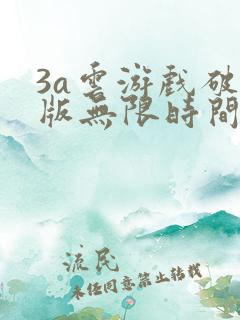 3a雲游戲破
版無限時間
流民
未经同意禁止转载